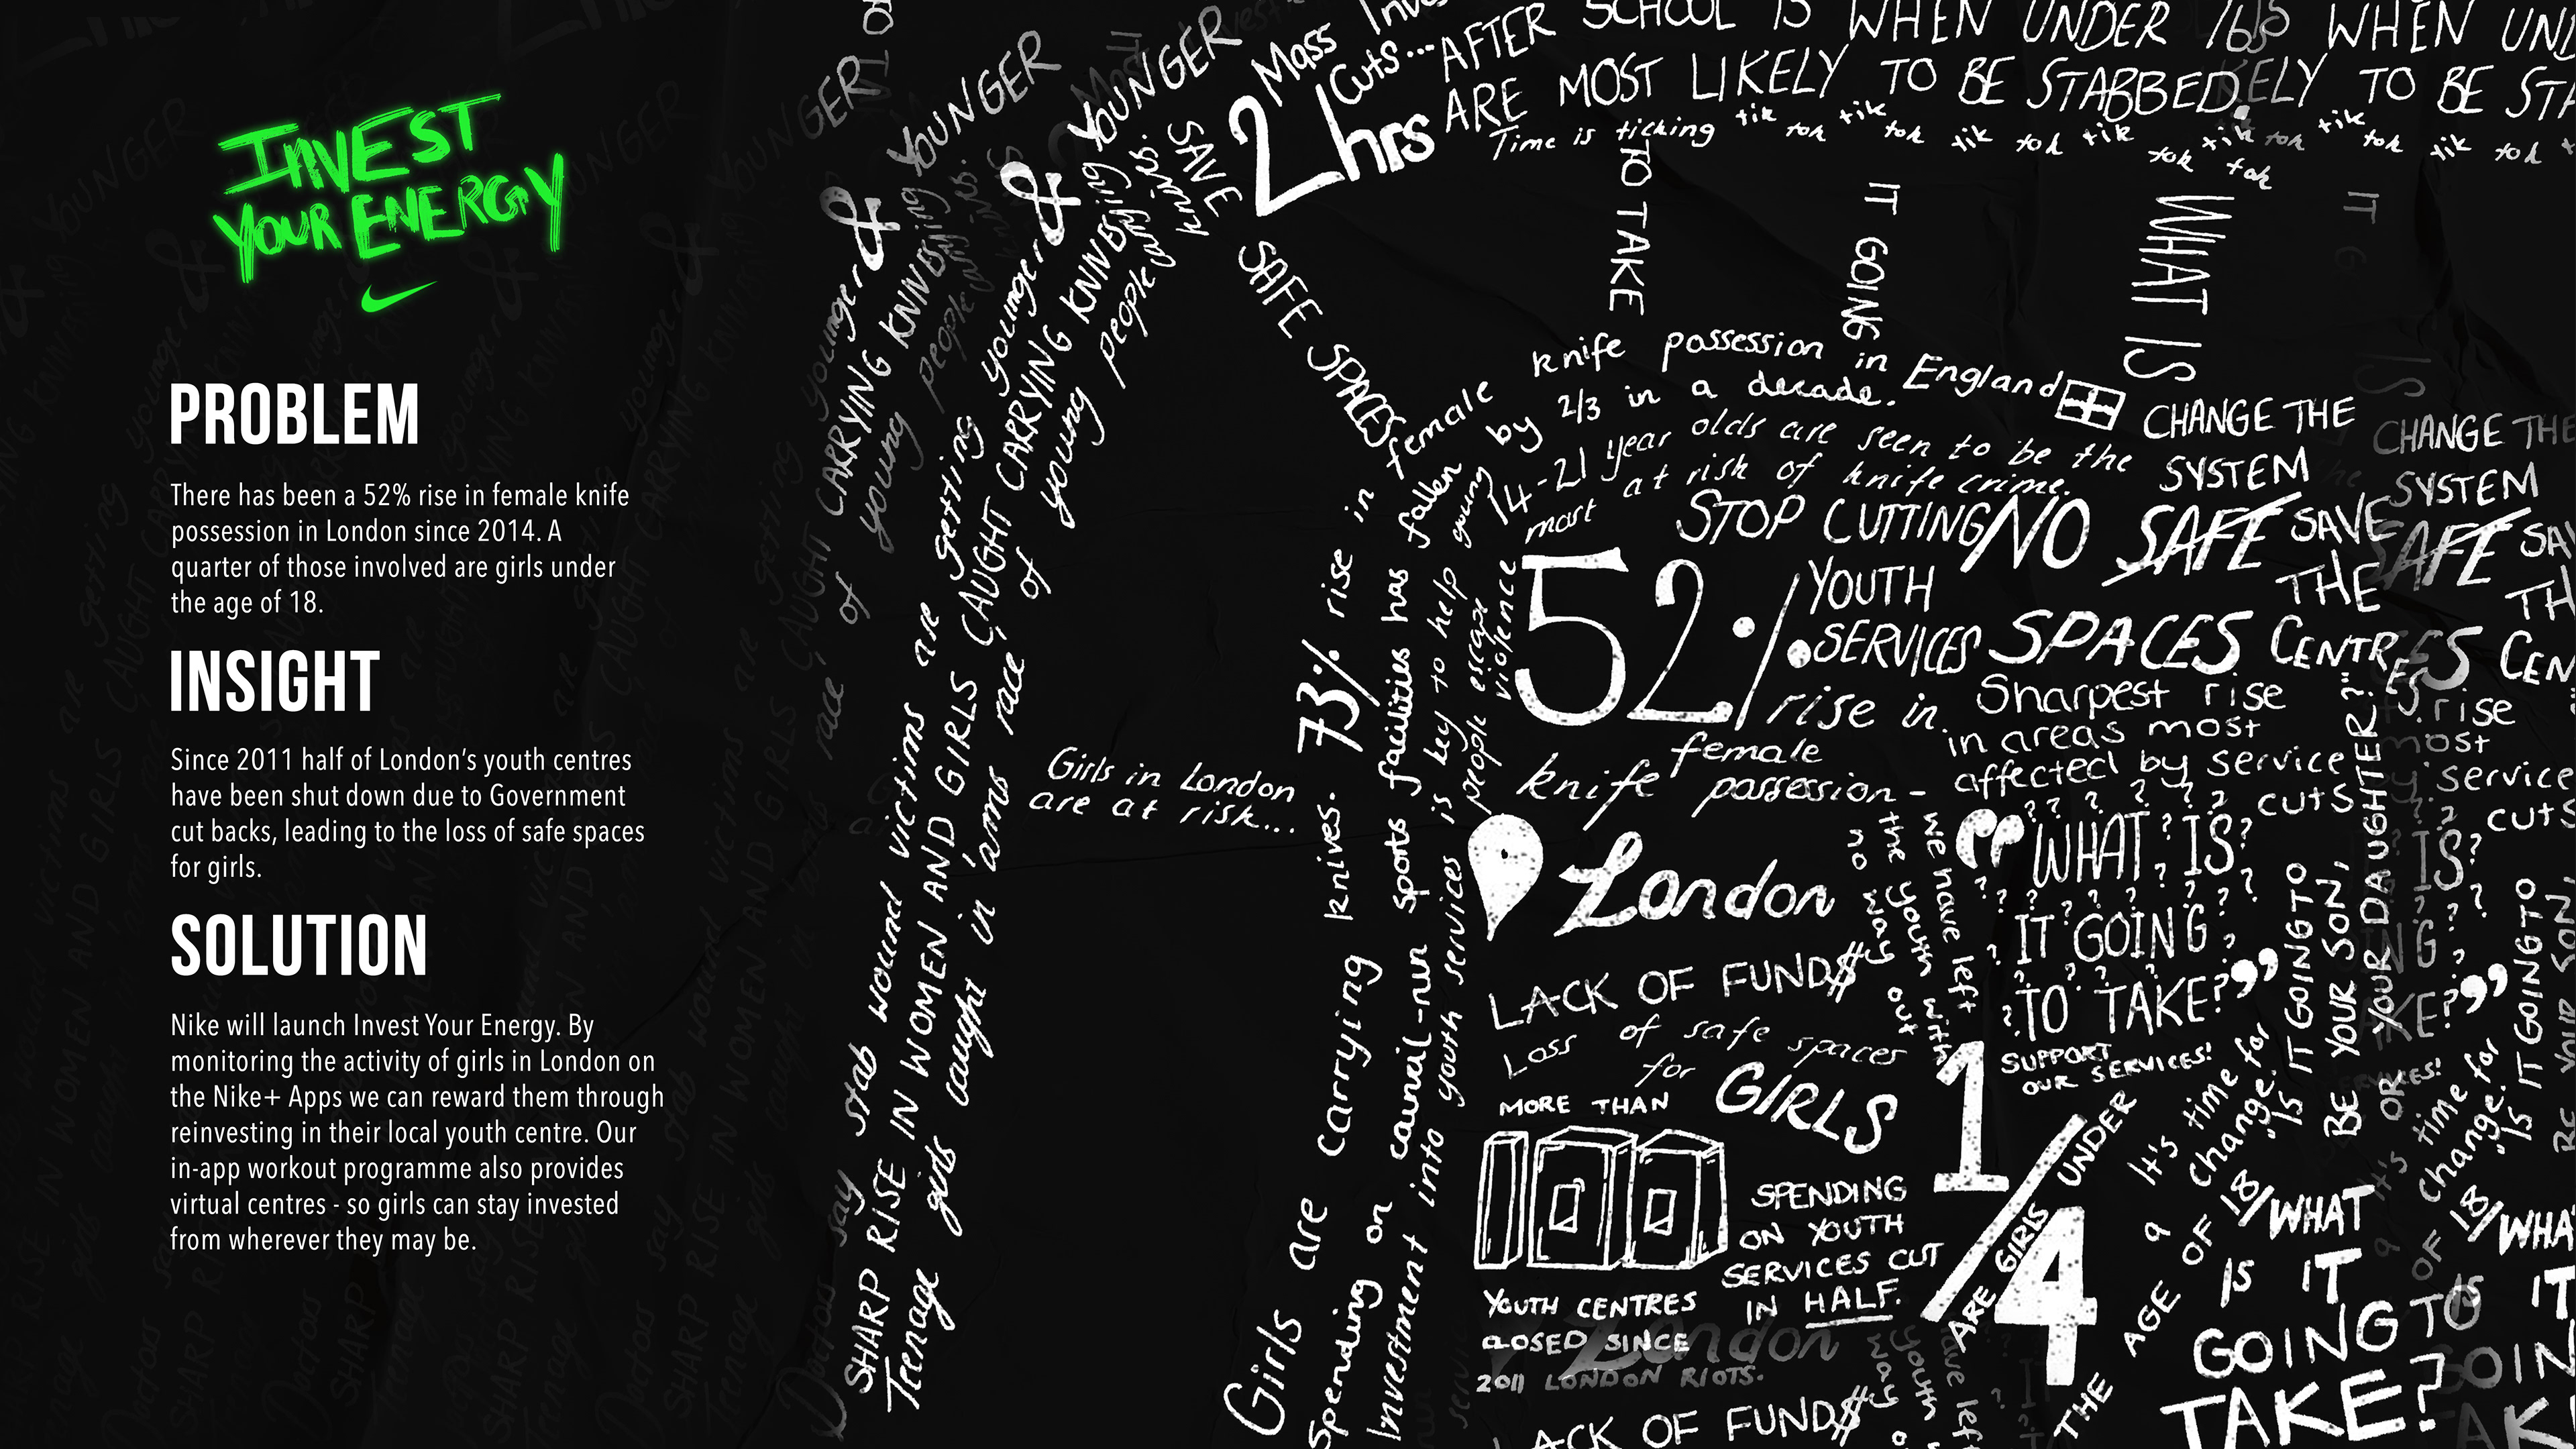 INVEST
YOUR ENERGY
PROBLEM
There has been a 52% rise in female knife
possession in London since 2014. A
quarter of those involved are girls under
the age of 18.
INSIGHT
Since 2011 half of London's youth centres
have been shut down due to Government
cut backs, leading to the loss of safe spaces
for girls.
SOLUTION
Nike will launch Invest Your Energy. By
monitoring the activity of girls in London on
the Nike+ Apps we can reward them through
reinvesting in their local youth centre. Our
in-app workout programme also provides
virtual centres - so girls can stay invested
from wherever they may be.
Doctors say stab wound victims are getting younger & YOUNGER
SHARP RISE IN WOMEN AND GIRLS CAUGHT CARRYING KNIVES
Teenage girls caught in 'arms race' of young people carrying knives.
SAVE
SAFE SPACES
2hrs
Mass
Cuts...
AFTER SCHOOL IS WHEN UNDER 16s
ARE MOST LIKELY TO BE STABBED.
Time is ticking tik tok tik tok tik tok tik tok tik tok
TO TAKE
IT GOING
WHAT IS
Girls in London
are at risk...
Girls are carrying knives. 73% rise in female knife possession in England
Spending on council-run sports facilities has fallen by 2/3 in a decade.
Investment into youth services is key to help young people escape violence
14-21 year olds are seen to be the
most at risk of knife crime.
CHANGE THE
SYSTEM
STOP CUTTING
YOUTH
SERVICES
NO SAFE
SPACES
SAVE
THE
CENTRES
52% rise in
female
knife possession -
London
Sharpest rise
in areas most
affected by service
cuts
we have left
the youth with
no way out
“WHAT IS
IT GOING
TO TAKE?”
"IS IT GOING TO
BE YOUR SON,
OR YOUR DAUGHTER?"
LACK OF FUND$
Loss of safe spaces
for GIRLS
SUPPORT
OUR SERVICES!
MORE THAN
100
YOUTH CENTRES
CLOSED SINCE
2011 LONDON RIOTS.
SPENDING
ON YOUTH
SERVICES CUT
IN HALF.
1/4
ARE GIRLS UNDER
THE AGE OF 18
It's time for
a change.
WHAT
IS IT
GOING TO
TAKE?
LACK OF FUND$